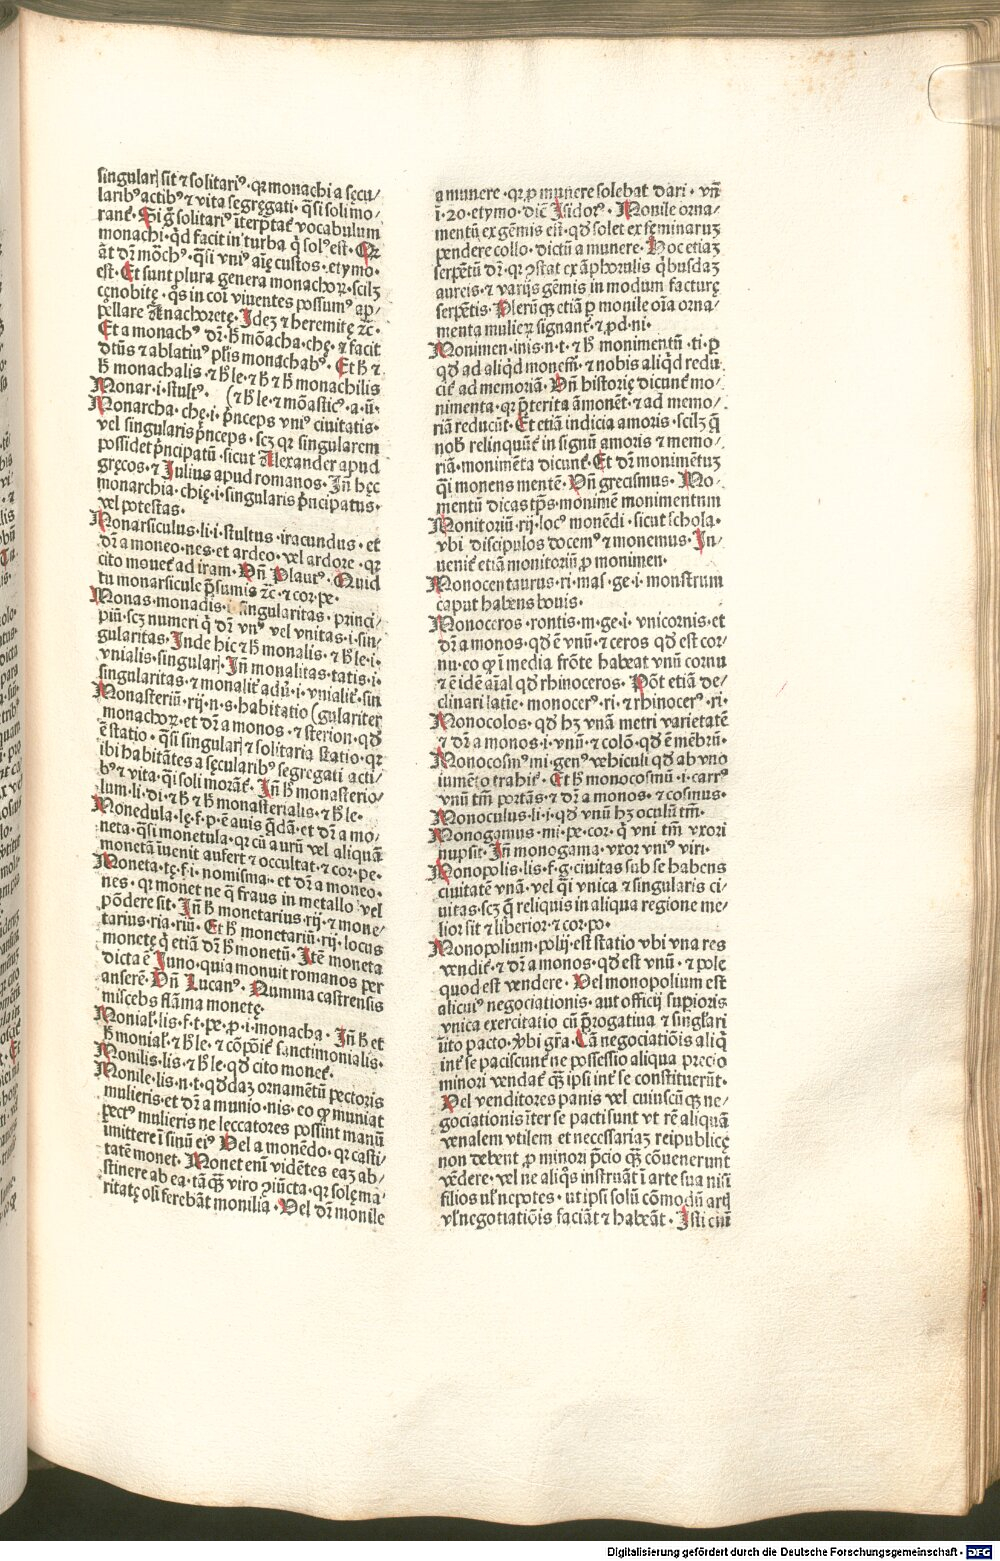 singularꝭ sit ⁊ solitariꝰ · qꝛ monachi a sęcu/
laribꝰ actibꝰ ⁊ vita segregati · q̄si soli mo/
rant᷑ · Si g̊ solitariꝰ īterp̄tat᷑ vocabulum
monachi · qͥd facit in turba qͥ solꝰ est · Qꝛ
āt dr̄ mōchꝰ · q̄si vniꝰ aīę custos · etymo·
est · Et sunt plura genera monachoꝝ · scilꝫ
cęnobitę · qͦs in coī viuentes possumꝰ ap/
pellare Anachoretę · Idez ⁊ heremitę ⁊c·
Et a monachꝰ dr̄ · h̄ mōacha · chę · ⁊ facit
dtūs ⁊ ablatiuꝰ pl̄is monachabꝰ · Et h̄ ⁊
h̄ monachalis ⁊ h̄ le · ⁊ h̄ ⁊ h̄ monachilis
Monar · i · stultꝰ · (⁊ h̄ le · ⁊ mōasticꝰ · a · ū·
Monarcha · chę · i · p̄nceps vniꝰ ciuitatis·
vel singularis p̄nceps · scꝫ qꝛ singularem
possidet p̄ncipatū · sicut Alexander apud
gręcos · ⁊ Julius apud romanos · Jn̄ hęc
monarchia · chię · i · singularis p̄ncipatus·
vel potestas.
Monarsiculus · li · i · stultus · iracundus · et
dr̄ a moneo · nes · et ardeo · vel ardore · qꝛ
cito mouet᷑ ad iram · Vn̄ Plautꝰ · Quid
tu monarsicule p̄sumis ⁊c · ⁊ cor · pe·
Monas · monadis · i · singularitas · princi/
piū · scꝫ numeri qͥ dr̄ vnꝰ vel vnitas · i · sin/
gularitas · Inde hic ⁊ h̄ monalis · ⁊ h̄ le · i·
vnialis · singularꝭ · Jn̄ monalitas · tatis · i·
singularitas · ⁊ monalit᷑ adū · i · vnialit᷑ · sin
Monasteriū · rij · n · s · habitatio (gulariter
monachoꝝ · et dr̄ a monos · ⁊ sterion · qd̄
ē statio · q̄si singularꝭ ⁊ solitaria statio · qꝛ
ibi habitātes a sęcularibꝰ segregati acti/
bꝰ ⁊ vita · qͣsi soli morāt᷑ · Jn̄ h̄ monasterio/
lum · li · di · ⁊ h̄ ⁊ h̄ monasterialis · ⁊ h̄ le·
Monedula · lę · f · p · ē auis q̄dā · et dr̄ a mo/
neta · q̄si monetula · qꝛ cū aurū vel aliquā
monetā īuenit aufert ⁊ occultat · ⁊ cor · pe·
Moneta · tę · f · i · nomisma · et dr̄ a moneo·
nes · qꝛ monet ne q̄ fraus in metallo vel
pōdere sit · Jn̄ h̄ monetarius · rij · ⁊ mone/
tarius · ria · riū · Et h̄ monetariū · rij · locus
monetę qͥ etiā dr̄ h̄ monetū · Itē moneta
dicta ē Juno · quia monuit romanos per
anserē · Vn̄ Lucanꝰ · Numma castrensis
miscebs flāma monetę·
Monial᷑ · lis · f · t · pe · ꝓ · i · monacha · Jn̄ h̄ et
h̄ monial᷑ · ⁊ h̄ le · ⁊ cōpōit᷑ sanctimonialis·
Monilis · lis · ⁊ h̄ le · qd̄ cito monet᷑·
Monile · lis · n · t · qd̄daz ornamētū pectoris
mulieris · et dr̄ a munio · nis · eo qꝙ muniat
pectꝰ mulieris ne leccatores possint manū
immittere ī sinū eiꝰ Vel a monēdo · qꝛ casti/
tatē monet · Monet enī vidētes eaz ab/
stinere ab ea · tāqꝫ viro ꝯiūcta · qꝛ solę ma·
ritatę olī ferebāt monilia · Vel dr̄ monile
a munere · qꝛ ꝓ munere solebat dari · vn̄
i · 20 · etymo · dic̄ Isidorꝰ · Monile orna/
mentū ex gēmis est · qd̄ solet ex feminaruz
pendere collo · dictū a munere · Hoc etiaz
serpētū dr̄ · qꝛ ꝯstat ex āphorulis qͥbusdaz
aureis · ⁊ varijs gēmis in modum facturę
serpētis · Plerūqꝫ etiā ꝓ monile oīa orna/
menta mulieꝝ signant᷑ · ⁊ ꝓd · ni·
Monimen · inis · n · t · ⁊ h̄ monimentū · ti · ꝓ
qd̄ ad aliqͥd monem̄ · ⁊ nobis aliqͥd redu
cit᷑ ad memoriā · Vn̄ historię dicunt᷑ mo/
nimenta · qꝛ p̄terita āmonēt · ⁊ ad memo/
riā reducūt · Et etiā indicia amoris · scilꝫ q̄
nob᷑ relinquūt᷑ in signū amoris ⁊ memo/
riā · monimēta dicunt᷑ · Et dr̄ monimētuz
qͣi monens mentē · Vn̄ grecismus · Mo·
mentū dicas tp̄s · monimē monimentum
Monitoriū · rij · locꝰ monēdi · sicut schola·
vbi discipulos docemꝰ ⁊ monemus · In/
uenit᷑ etiā monitoriū ꝓ monimen·
Monocentaurus · ri · mas̄ · ge · i · monstrum
caput habens bouis·
Monoceros · rontis · m · ge · i · vnicornis · et
dr̄ a monos · qd̄ ē vnū · ⁊ ceros qd̄ est cor/
nu · eo qꝙ ī media frōte habeat vnū cornu
⁊ ē idē aīal qd̄ rhinoceros · Pōt etiā de/
clinari latie · monocerꝰ · ri · ⁊ rhinocerꝰ · ri·
Monocolos · qd̄ hꝫ vnā metri varietatē
⁊ dr̄ a monos · i · vnū · ⁊ colō · qd̄ ē mēbrū·
Monocosmꝰ · mi · genꝰ vehiculi qd̄ ab vno
iumēto trahit᷑ · Et h̄ monocosmū · i · carrꝰ
vnū tm̄ portās · ⁊ dr̄ a monos · ⁊ cosmus·
Monoculus · li · i · qd̄ vnū hꝫ oculū tm̄·
Monogamus · mi · pe · cor · qͥ vni tm̄ vxori
nupsit · Jn̄ monogama · vxor vniꝰ viri·
Monopolis · lis · f · g · ciuitas sub se habens
ciuitatē vnā · vel q̄i vnica ⁊ singularis ci/
uitas · scꝫ q̄ reliquis in aliqua regione me/
lior sit ⁊ liberior · ⁊ cor · po·
Monopolium · polij · est statio vbi vna res
vendit᷑ · ⁊ dr̄ a monos · qd̄ est vnū · ⁊ pole
quod est vendere · Vel monopolium est
alicuiꝰ negociationis · aut officij supioris
vnica exercitatio cū p̄rogatiua ⁊ singl̄ari
īito pacto · vbi gr̄a · Cā negociatiōis aliqͥ
int᷑ se paciscunt᷑ ne possessio aliqua precio
minori vendat᷑ qꝫ ipsi int᷑ se constituerūt·
Vel venditores panis vel cuiuscūqꝫ ne/
gociationis īter se pacti sunt vt rē aliquā
venalem vtilem et necessariaz reipublicę
non debent ꝓ minori p̄cio qꝫ cōuenerunt
vēdere · vel ne aliqͦs instruāt ī arte sua nisi
filios ul̓ nepotes · ut ipsi solū cōmodū artꝭ
vl̓ negotiatiōis faciāt ⁊ habeāt · Isti eniī
Digitalisierung gefördert durch die Deutsche Forschungsgemeinschaft - DFG